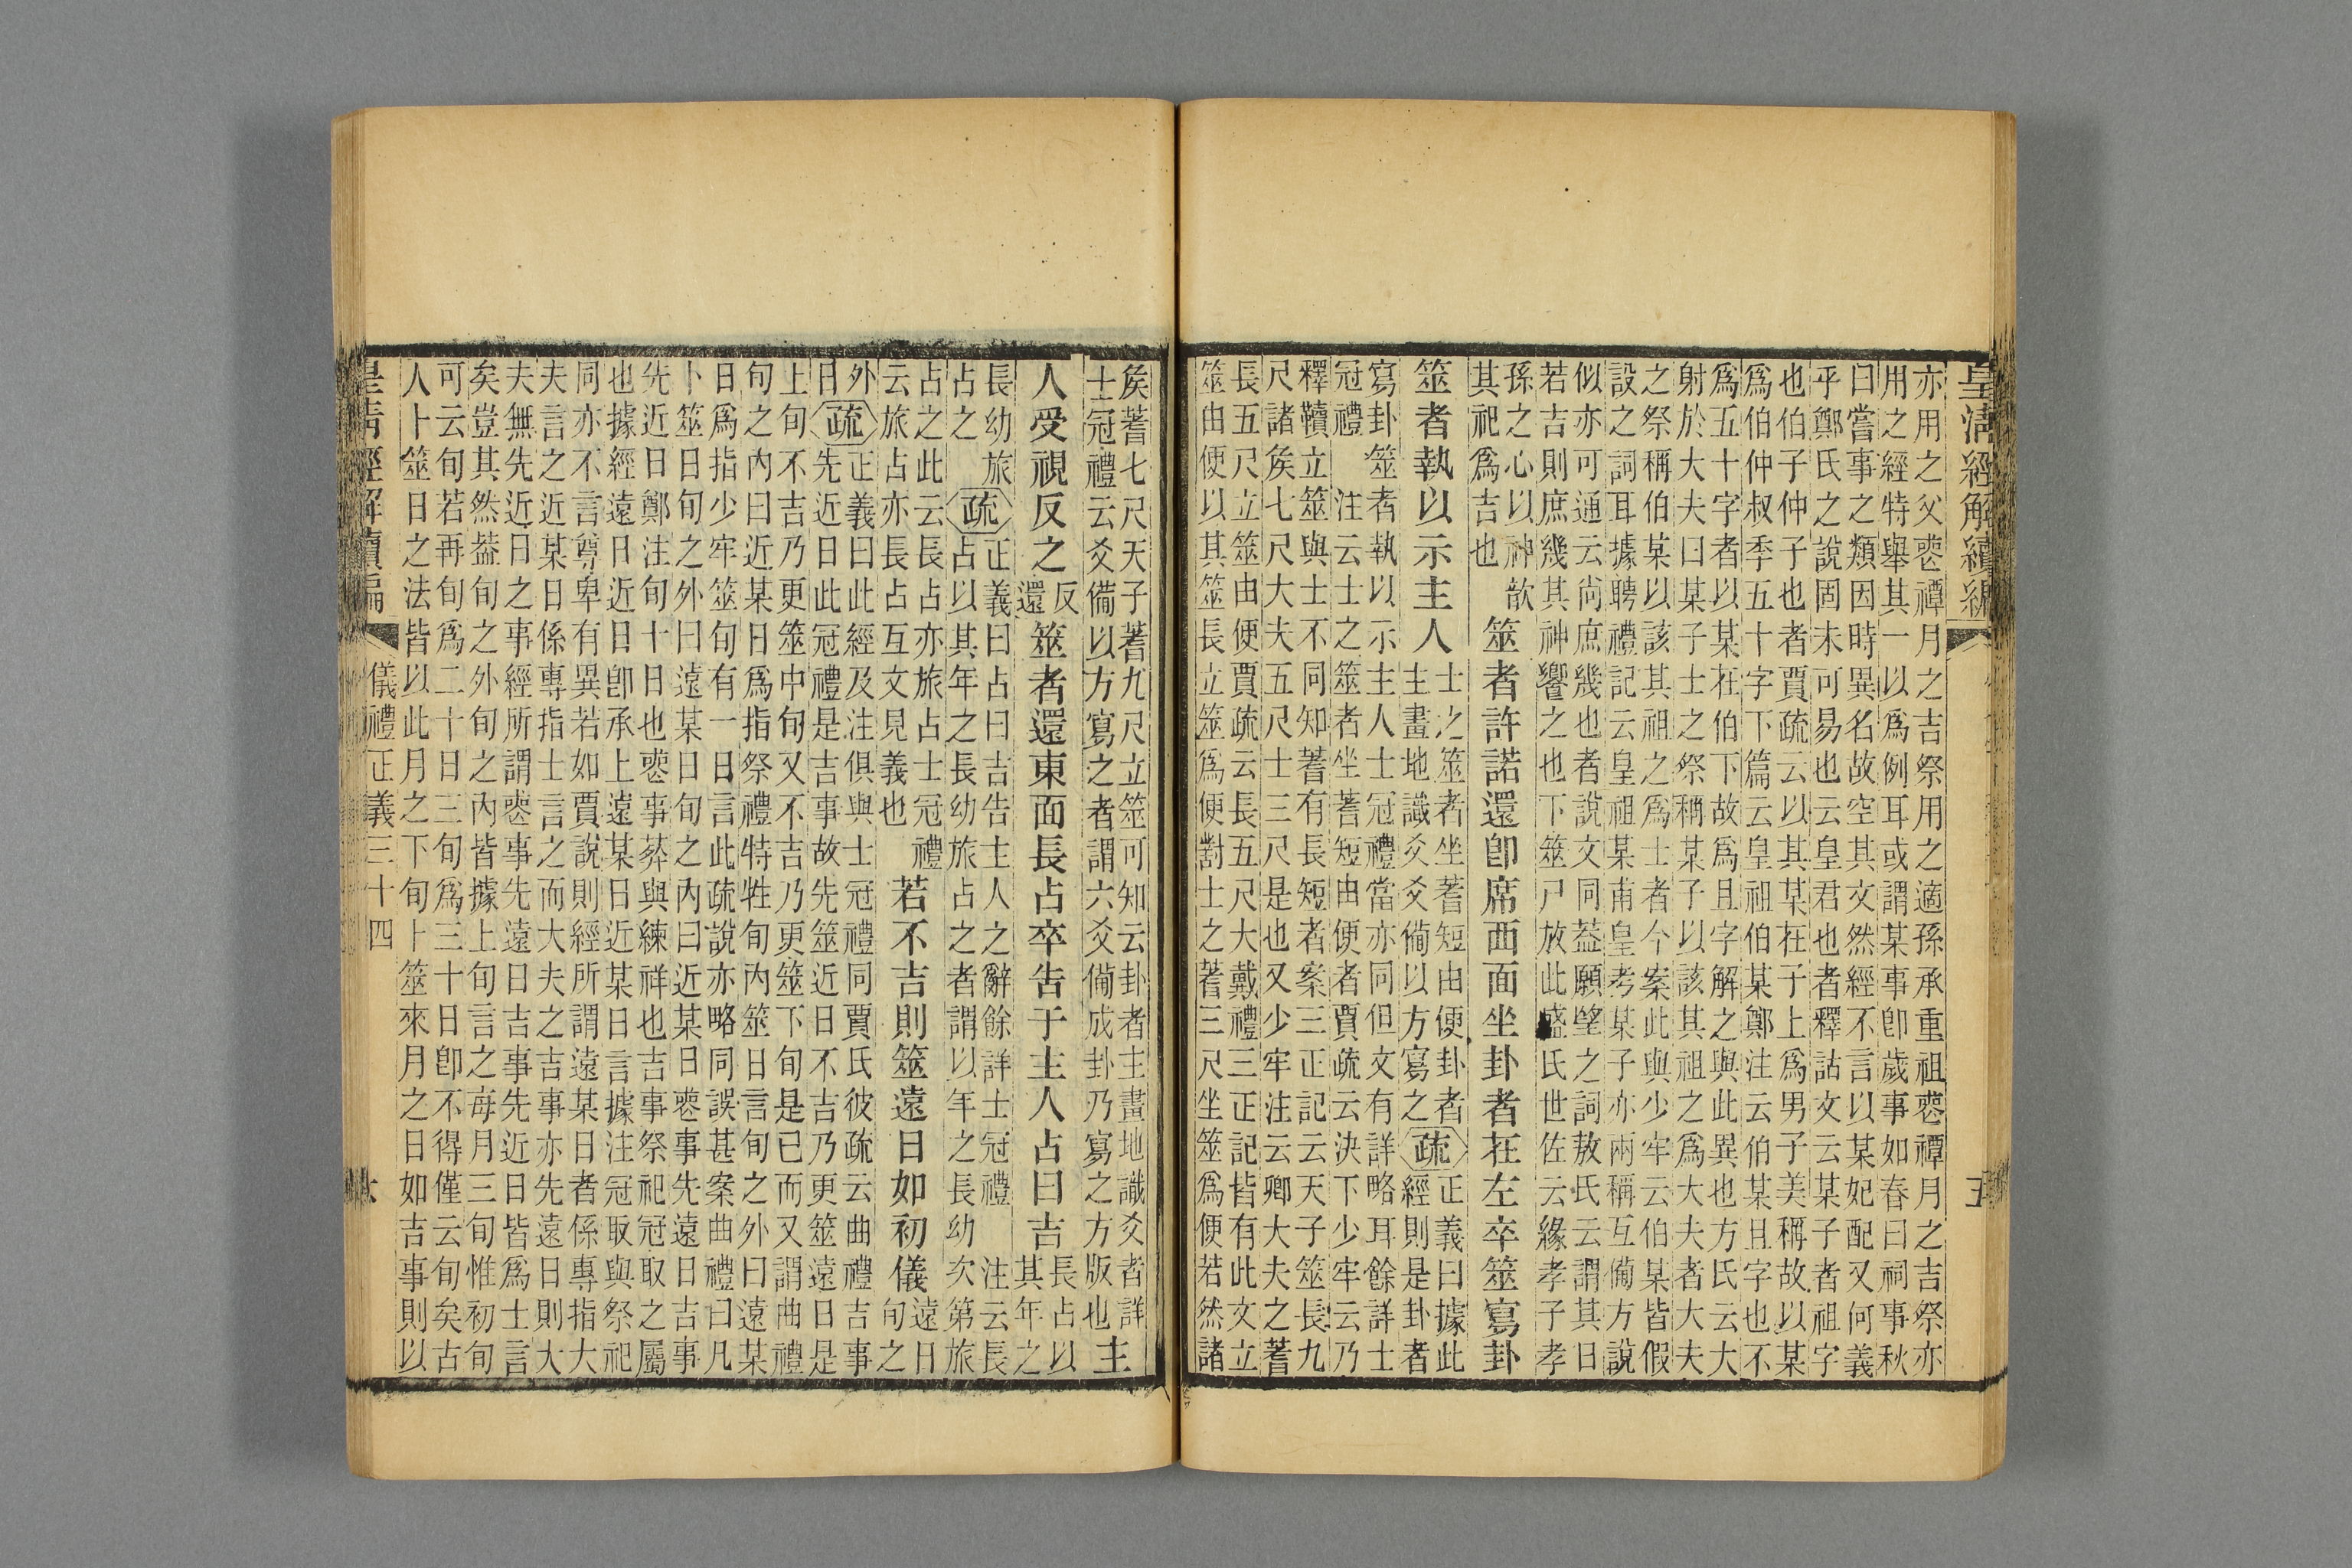 皇清經解續編　五
亦用之父䘮禫月之吉祭用之適孫承重祖䘮禫月之吉祭亦
用之經特舉其一以爲例耳或謂某事卽歲事如春曰祠事秋
曰嘗事之類因時異名故空其文然經不言以某妃配又何義
乎鄭氏之說固未可易也云皇君也者釋詁文云某子者祖字
也伯子仲子也者賈疏云以其某在子上爲男子美稱故以某
爲伯仲叔季五十字下篇云皇祖伯某鄭注云伯某且字也不
爲五十字者以某在伯下故爲且字解之與此異也方氏云大
射於大夫曰某子士之祭稱某子以該其祖之爲大夫者大夫
之祭稱伯某以該其祖之爲士者今案此與少牢云伯某皆假
設之詞耳據聘禮記云皇祖某甫皇考某子亦兩稱互備方說
似亦可通云尙庶幾也者說文同葢願朢之詞敖氏云謂其日
若吉則庶幾其神饗之也下筮尸放此盛氏世佐云緣孝子孝
孫之心以神歆
其祀爲吉也
筮者許諾還卽席西面坐卦者在左卒筮寫卦
筮者執以示主人
士之筮者坐蓍短由便卦者
主畫地識爻爻備以方寫之
疏
正義曰據此
經則是卦者
寫卦筮者執以示主人士冠禮當亦同但文有詳略耳餘詳士
冠禮　注云士之筮者坐蓍短由便者賈疏云決下少牢云乃
釋韥立筮與士不同知蓍有長短者案三正記云天子筮長九
尺諸矦七尺大夫五尺士三尺是也又少牢注云卿大夫之蓍
長五尺立筮由便賈疏云長五尺大戴禮三正記皆有此文立
筮由便以其筮長立筮爲便對士之蓍三尺坐筮爲便若然諸
矦蓍七尺天子蓍九尺立筮可知云卦者主畫地識爻者詳
士冠禮云爻備以方寫之者謂六爻備成卦乃寫之方版也
主
人受視反之
反
還
筮者還東面長占卒告于主人占曰吉
長占以
其年之
長幼旅
占之
疏
正義曰占曰吉告主人之辭餘詳士冠禮　注云長
占以其年之長幼旅占之者謂以年之長幼次第旅
占之此云長占亦旅占士冠禮
云旅占亦長占互文見義也
若不吉則筮遠日如初儀
遠日
旬之
外日
疏
正義曰此經及注俱與士冠禮同賈氏彼疏云曲禮吉事
先近日此冠禮是吉事故先筮近日不吉乃更筮遠日是
上旬不吉乃更筮中旬又不吉乃更筮下旬是已而又謂曲禮
旬之內曰近某日爲指祭禮特牲旬內筮日言旬之外曰遠某
日爲指少牢筮旬有一日言此疏說亦略同誤甚案曲禮曰凡
卜筮日旬之外曰遠某日旬之內曰近某日䘮事先遠日吉事
先近日鄭注旬十日也䘮事葬與練祥也吉事祭祀冠取之屬
也據經遠日近日卽承上遠某日近某日言據注冠取與祭祀
同亦不言尊卑有異若如賈說則經所謂遠某日者係專指大
夫言之近某日係專指士言之而大夫之吉事亦先遠日則大
夫無先近日之事經所謂䘮事先遠日吉事先近日皆爲士言
矣豈其然葢旬之外旬之內皆據上旬言之每月三旬惟初旬
可云旬若再旬爲二十日三旬爲三十日卽不得僅云旬矣古
人卜筮日之法皆以此月之下旬卜筮來月之日如吉事則以
皇清經解續編　儀禮正義三十四　六